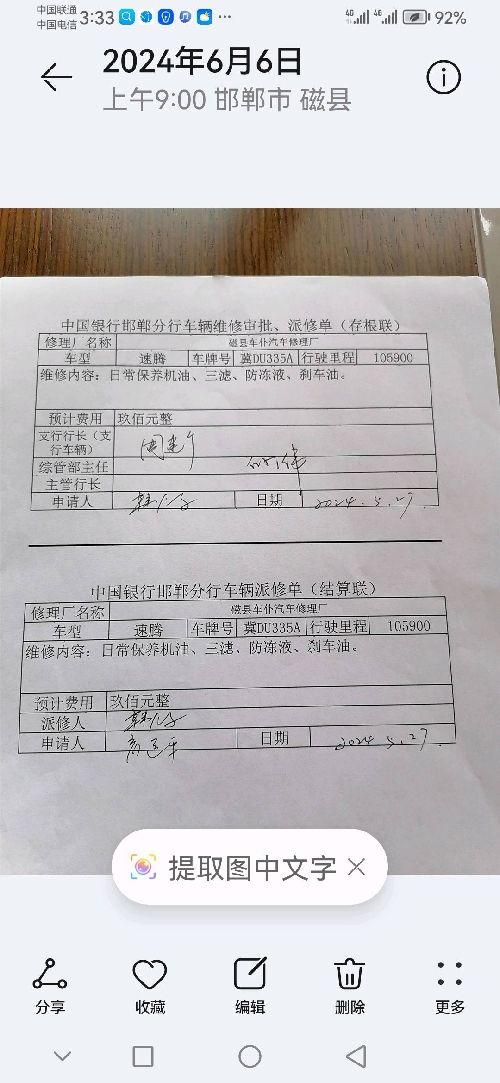 中国联通
中国电信 3:33 4G 4G 92%
2024年6月6日
上午9:00 邯郸市 磁县
中国银行邯郸分行车辆维修审批、派修单（存根联）
修理厂名称 磁县车仆汽车修理厂
车型 速腾 车牌号 冀DU335A 行驶里程 105900
维修内容：日常保养机油、三滤、防冻液、刹车油。
预计费用 玖佰元整
支行行长（支行车辆）
综管部主任
主管行长
申请人 日期 2024.5.27.
中国银行邯郸分行车辆派修单（结算联）
修理厂名称 磁县车仆汽车修理厂
车型 速腾 车牌号 冀DU335A 行驶里程 105900
维修内容：日常保养机油、三滤、防冻液、刹车油。
预计费用 玖佰元整
派修人
申请人 日期 2024.5.27.
提取图中文字
分享 收藏 编辑 删除 更多